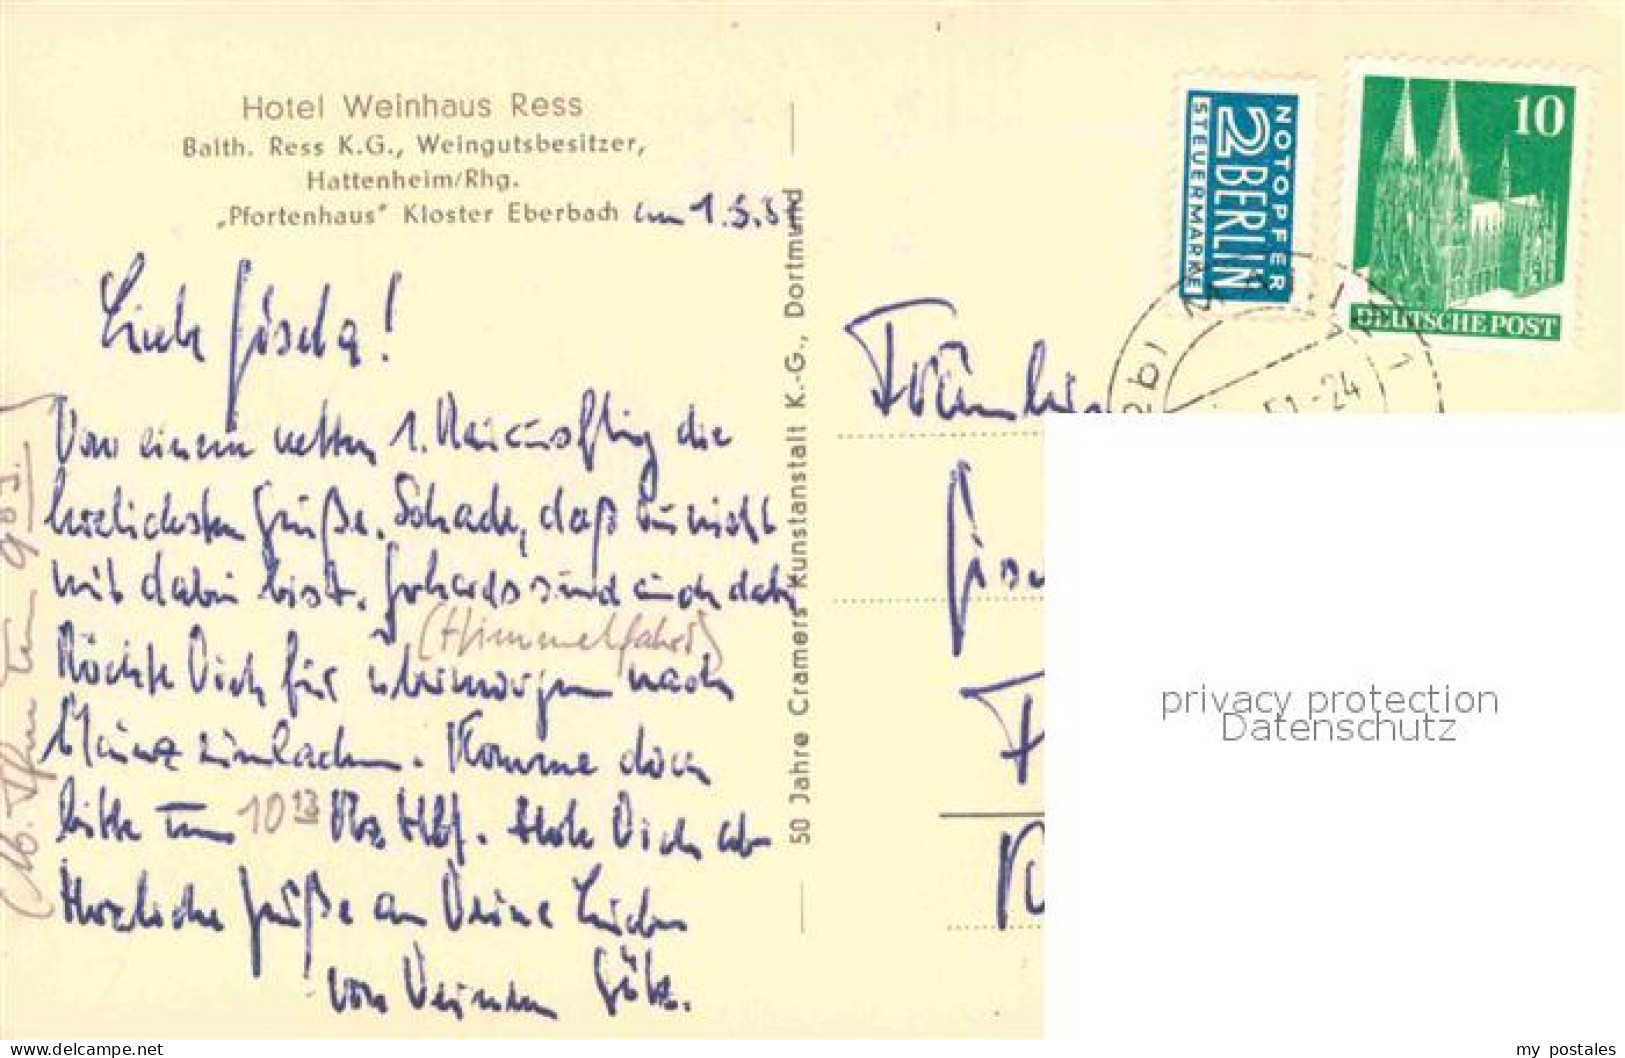 Hotel Weinhaus Ress
Balth. Ress K.G., Weingutsbesitzer,
Hattenheim/Rhg.
„Pfortenhaus" Kloster Eberbach am 1.5.51
Liebe Gisela!
Von einem netten 1. Maiausflug die
herzlichsten Grüße. Schade, daß Du nicht
mit dabei bist. Gerhards sind auch dabei
(Himmelfahrt)
Möchte Dich für übermorgen nach
Mainz einladen. Komme doch
bitte um 10 13 Mz Hbf. Hole Dich ab
Herzliche Grüße an Deine Lieben
von Deinem Götz.
50 Jahre Cramers Kunstanstalt K.-G., Dortmund
NOTOPFER
2 BERLIN
STEUERMARKE
10
DEUTSCHE POST
51-24
Fräulein
Gise
privacy protection
Datenschutz
my postales